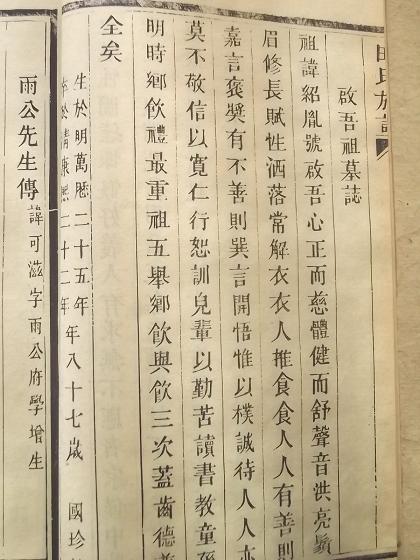 田氏族譜
啟吾祖墓誌
祖諱紹胤號啟吾心正而慈體健而舒聲音洪亮鬚
眉修長賦性洒落常解衣衣人推食食人人有善則
嘉言褒奬有不善則巽言開悟惟以樸誠待人人亦
莫不敬信以寬仁行恕訓兒輩以勤苦讀書教童
明時鄉飲禮最重祖五舉鄉飲與飲三次蓋齒德
全矣
生於明萬曆二十五年
卒於清康熙二十二年 年八十七歲 國珍
雨公先生傳 諱可滋字雨公府學增生